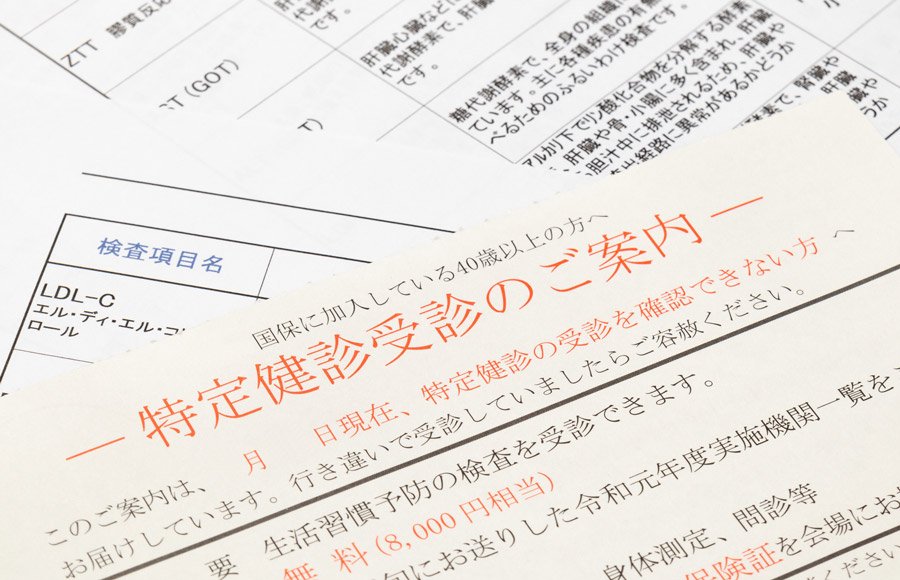 ZTT 膠質反応
代謝です。
ST (GOT)
肝臓心臓などに
代謝酵素で、肝
です。
T)
糖代謝酵素で、全身の組織
ています。主に各種疾患の有無
べるためのふるいわけ検査です。
アルカリ下でリン酸化合物を分解する酵素
、肝臓や骨・小腸に多く含まれ、肝臓
胆汁中に排泄されるため、肝臓や
出経路に異常があるかどうか
酵素で、腎臓や
検査項目名
LDL-C
エル・ディ・エル・コレ
ロール
国保に加入している40歳以上の方へ
— 特定健診受診のご案内 —
このご案内は、 月 日現在、特定健診の受診を確認できない方へ
お届けしています。行き違いで受診していましたらご容赦ください。
要 生活習慣予防の検査を受診できます。
無料(8,000円相当)
旬にお送りした令和元年度実施機関一覧を、
身体測定、問診等
保険証を会場にお
ください